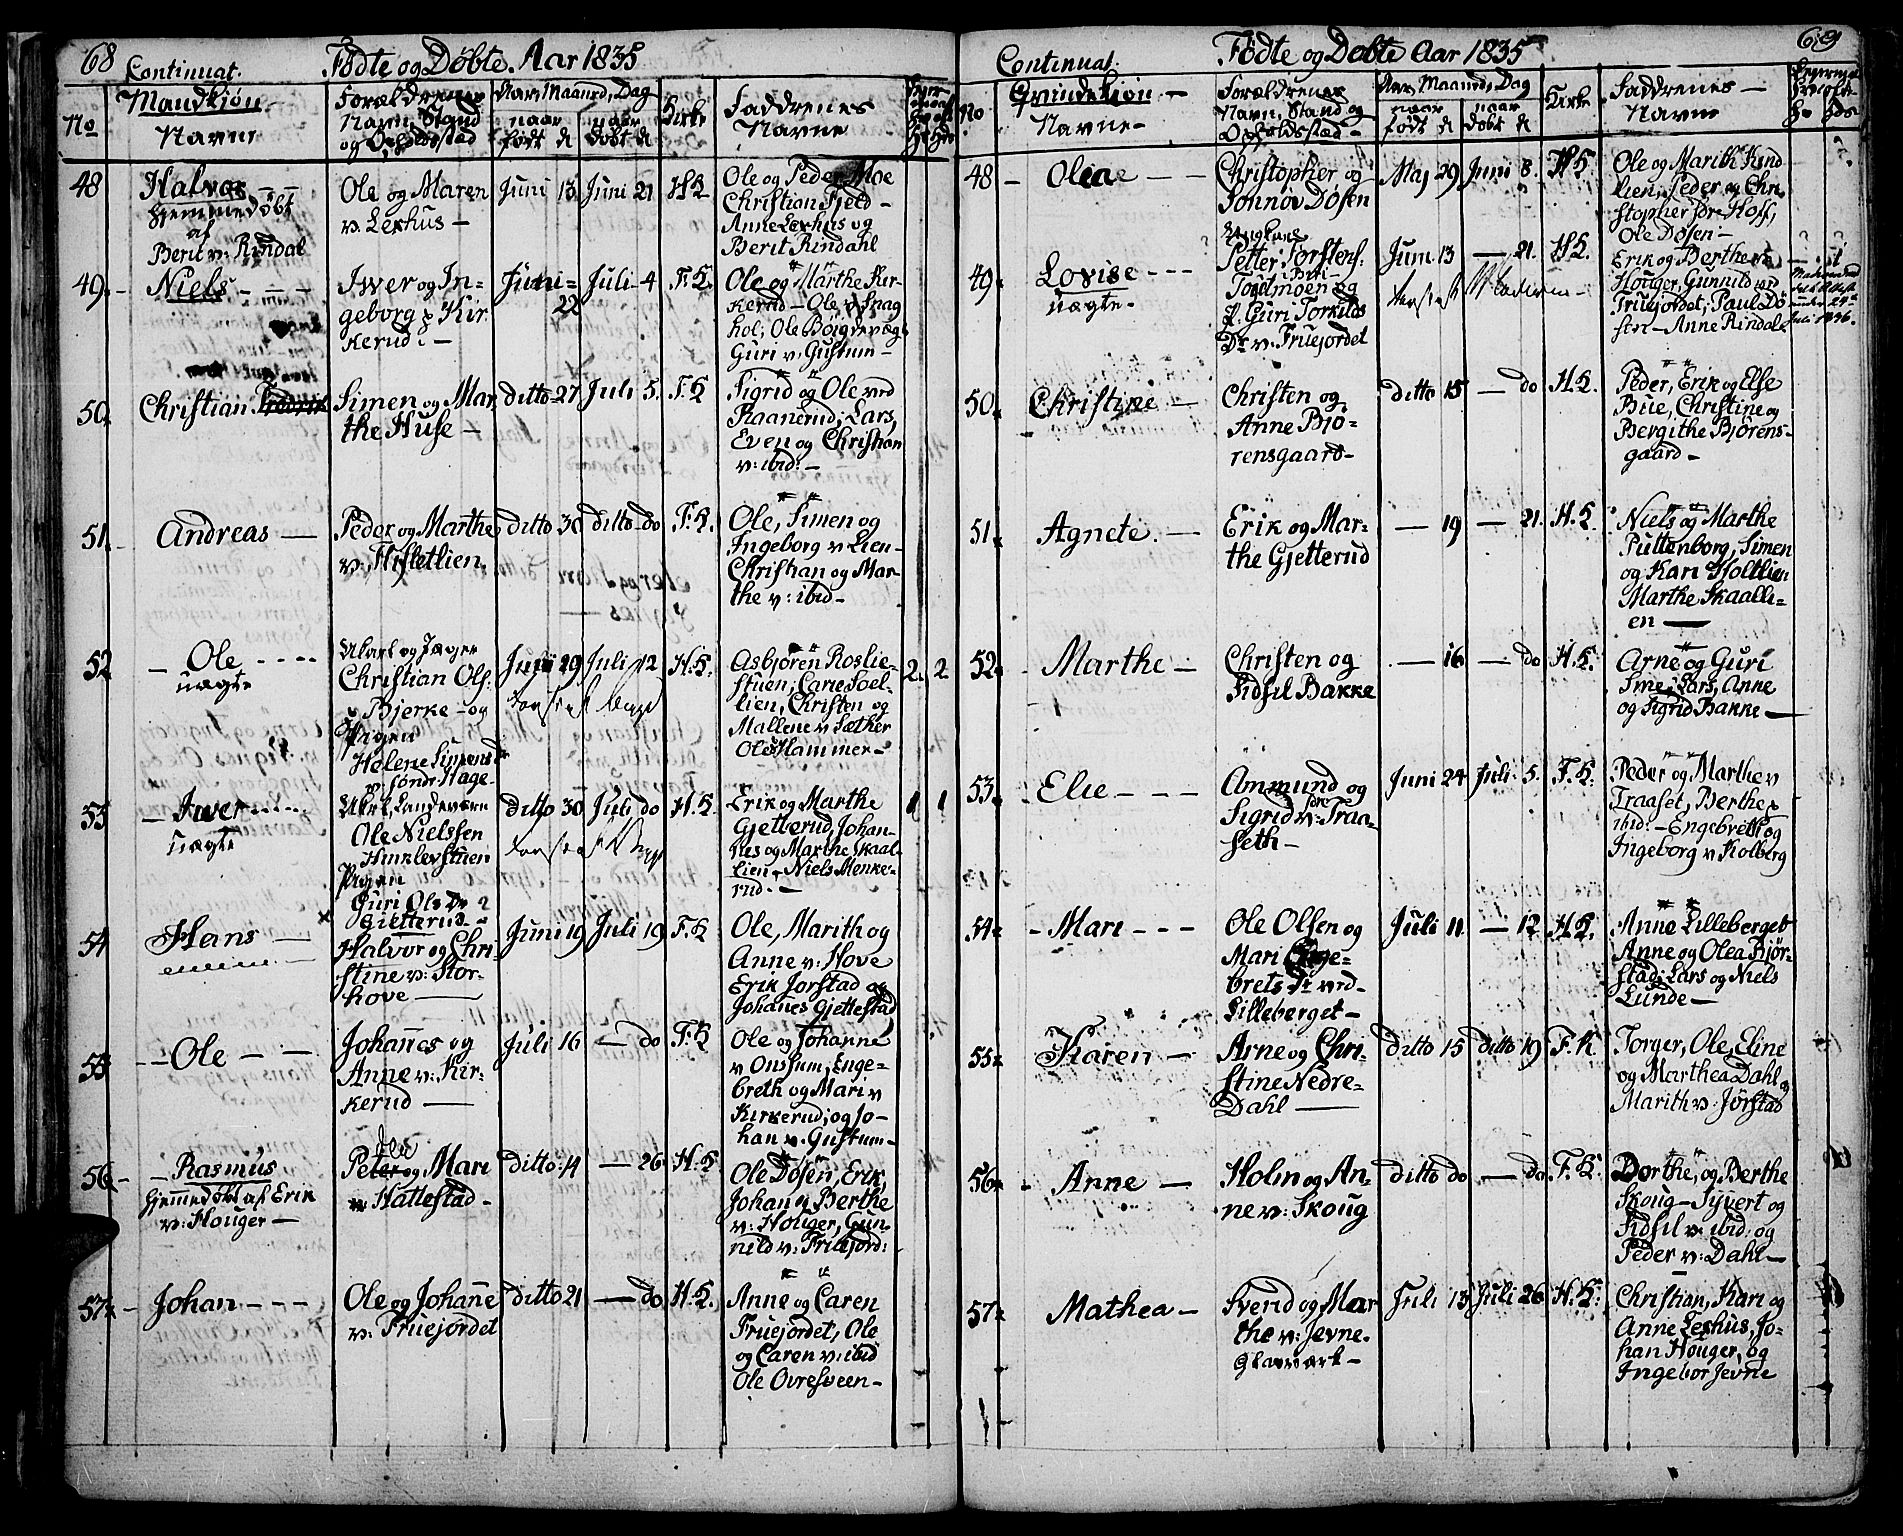 68
Continuat.
Födte og Döbte. Aar 1835
No
Mandkjön
Navne
Forældrenes
Navn, Stand
og Opholdsstad
Aar, Maaned, Dag
naar
födt d
naar
Döbt d
Kirke
Faddrenes
Navne
48
Halvor
hjemmedöbt
af
Berit v: Rindal
Ole og Maren
v. Lerhus —
Juni 13
Juni 21
H K
Ole og Peder Moe
Christian Fjeld —
Anne Lerhus og
Berit Rindahl
49. -
Niels - - -
Iwer og In-
geborg v Kir
kerud: —
Juni =
22
Juli - 4
F. K.
Ole og Marthe Kir-
kerud — Ole v Snag
hol; Ole
Guri v: Gustum —
50.
Christian
Simen og Mar
the Huse —
ditto 27
Juli 5.
F. K
Sigrid og Ole ved
Raanerud; Lars,
Even og Christian
v: ibid: —
51. -
Andreas —
Peder og Marthe
v: Hisletlien.
ditto 30
ditto do
F: K.
Ole, Simen og
Ingeborg v Lien -
Christian og Mar-
the v: ibid —
52
- Ole - - - -
uægte
Christian Ols:
Bjerke — og
Pigen
Helene Simens d
Hage -
Juni 29
Juli 12
H. K.
Asbjören Roslie-
stuen; Carie Soel-
lien, Christen og
Mallene v Sæther
Ole Hammer —
2.
2
53
- Iwer - - - -
uægte
Ole Nielssen
Pigen
Guri Ols Dr
Gjetterud —
ditto 30
Juli do
H. K.
Erik og Marthe
Gjetterud, Johan-
nes og Marthe Skaal-
lien - Niels Menke-
rud. —
1
1
54
Hans —
Halvor og Chri-
stine v: Stor-
hove —
Juni 19
Juli 19
F. K
Ole, Marith og
Anne v: Hove
Erik Jorstad og
Johanes Gjettestad
55
- - Ole - -
Johanes og
Anne v: Kir-
kerud —
Juli 16
— do
F. K
Ole og Johanne
v Onssum, Enge-
breth og Mari v
Kirkerud; og Jo-
han v: Gustum —
56. -
- Rasmus
hjemmedöbt af Erik
v: Houger —
og Mari
v: Hattestad —
ditto 14
— 26
H. K
Ole Dosen, Erik,
Johan og Berthe
v: Houger, Gun-
nild v: Fruejord:
57. -
Johan - - -
Ole og Johane
v: Fruejordet
ditto 21
— do
H. K.
Anne og Caren
Fruejordet, Ole
og Caren v: ibid
Ole Ovresveen —
69
Continuat.
Födte og Dobte Aar 1835
No
Qvindekjön —
Navne —
Forældrenes
Navn, Stand og
Opholdsstad —
Aar, Maaned, Dag
naar
födt d
naar
döbt d
Kirke
Faddrenes —
Navne
48 -
Oleae - -
Christopher og
Jonnöv Dösen
Maj 29
Juni 8.
H K
Ole og Marith Kind
lien, Peder og Chri-
stopher sdre Hoff,
Ole Dösen: —
49.
Lovise - - -
uægte.
Ungkarl
Petter Torstens:
Jordmoen og
p. Guri Torkilds
Dr v: Fruejordet
Juni 13
— 21.
H K.
Erik og Berthe v
Houger, Gunnild ved
Fruejordet; Paul Dö-
sen — Anne Rindal
Juli 1836.
50.
Christine —
Christen og
Anne Bjö-
rensgaard —
ditto 15
— do
H. K.
Peder, Erik og Else
Bue, Christine og
Bergithe Bjørens-
gaard —
51.
Agnete. —
Erik og Mar-
the Gjetterud
— 19
— 21.
H. K.
Niels og Marthe
Puttenborg, Simen
og Kari Holtlien
Marthe Skaalli-
en —
52.
- Marthe —
Christen og
Sidsil Bakke
— 16
— do
H. K.
Arne og Guri
Sme, Lars, Anne
og Sigrid Bakke —
53.
Elie - - -
Ammund og
Sigrid v: sdre Traa-
seth —
Juni 24
Juli 5.
F. K.
Peder og Marthe v
Traaset, Berthe v
ibid: — Engebreth og
Ingeborg v Kolberg
54.
- Mari - - -
Ole Olsen og
Mari Enge-
brets Dr ved
Lilleberget —
Juli 11
— 12
H K.
Anne Lilleberget
Anne og Olea Björ-
stad; Lars og Niels
Lunde —
55.
Karen —
Arne og Chri-
stine Nedre-
Dahl —
ditto 15
ditto 19
F. K
Torger, Ole, Eline
og Marthea Dahl og
Marith v: Jørstad
56.
- Anne —
Holm og An-
ne v: Skoug
ditto do
— do
F. K.
Dorthe, og Berthe
Skoug — Syvert og
Sidsil v: ibid: og
Peder v: Dahl —
57.
Mathea —
Sverid og Mar
the v: Jevne.
Glasværk —
Juli 13
Juli 26
H. K.
Christian, Kari og
Anne Lerhus, Jo-
han Houger, og
Ingebor Jevne